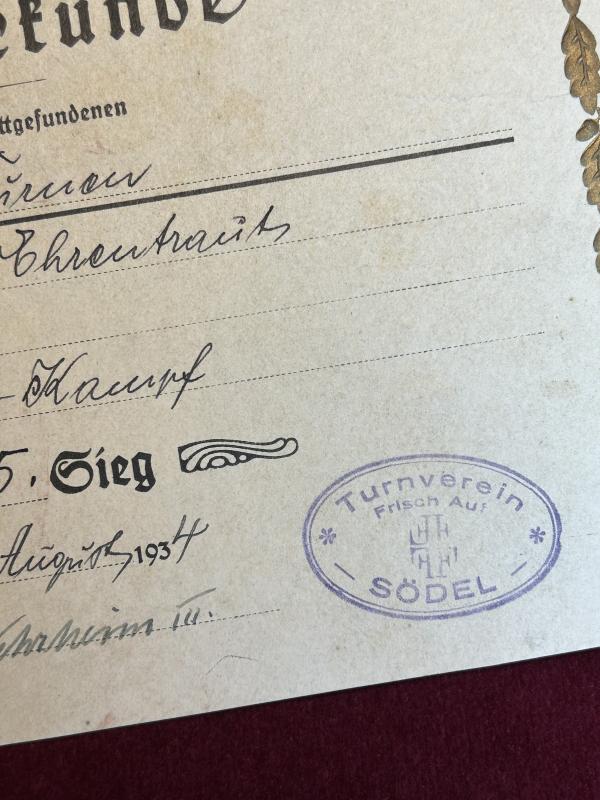 ekunde
ttgefundenen
urnen
Ehrentraut
-Kampf
5. Sieg
August 1934
III.
Turnverein
Frisch Auf
SÖDEL